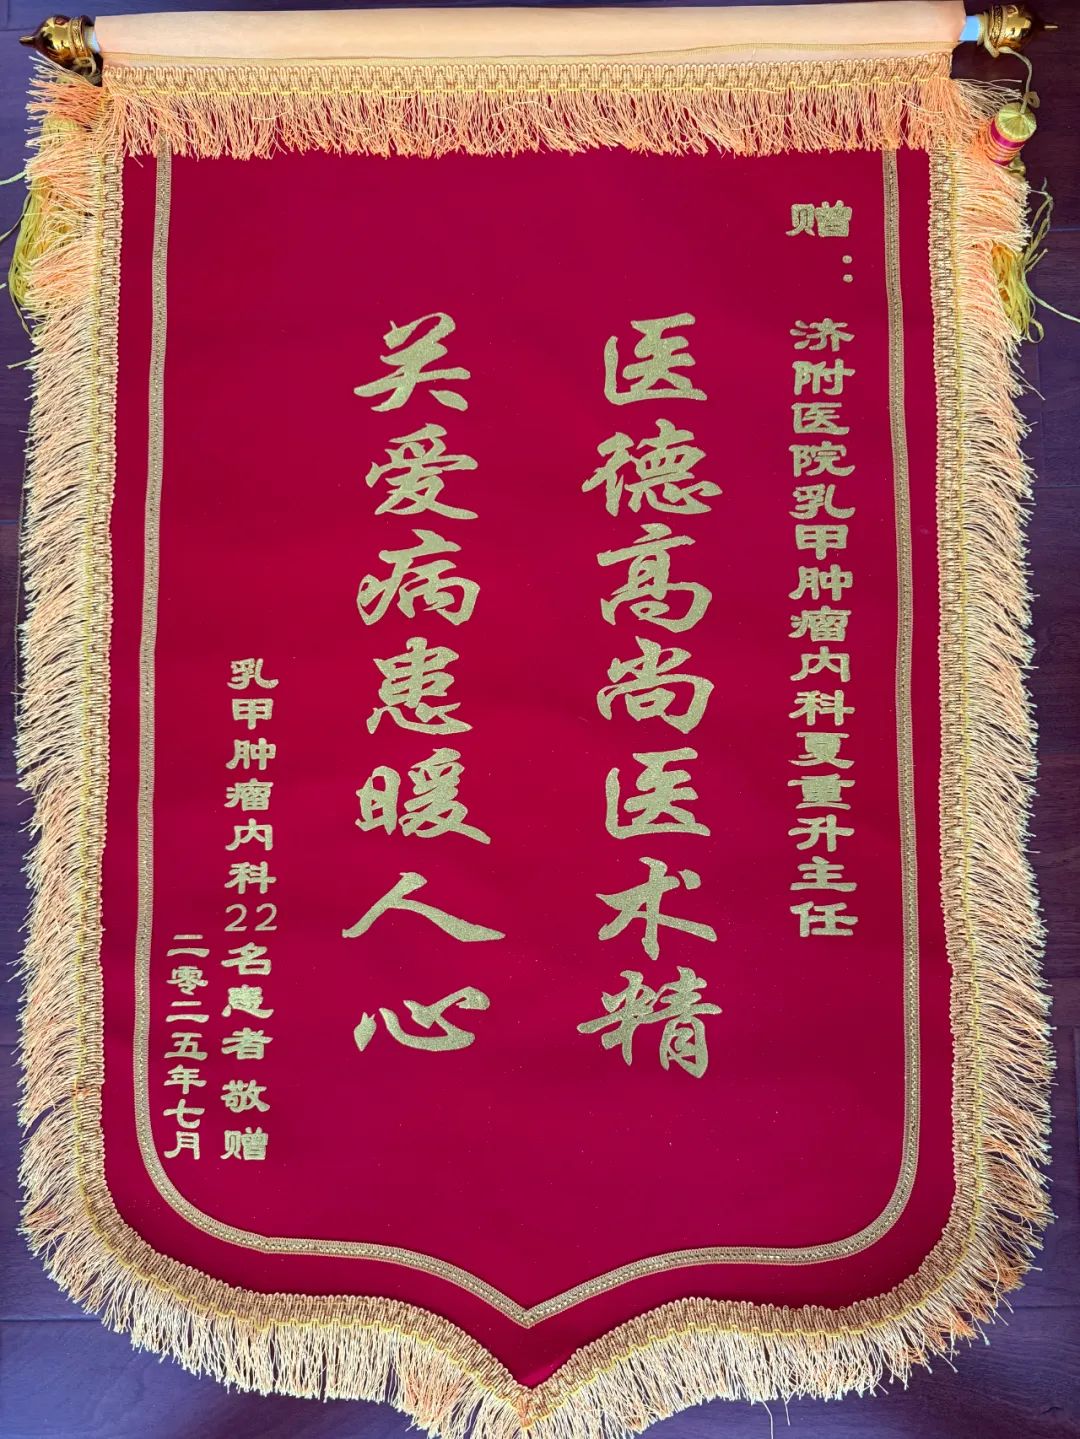 赠：济附医院乳甲肿瘤内科夏重升主任
医德高尚医术精
关爱病患暖人心
乳甲肿瘤内科22名患者敬赠
二零二五年七月